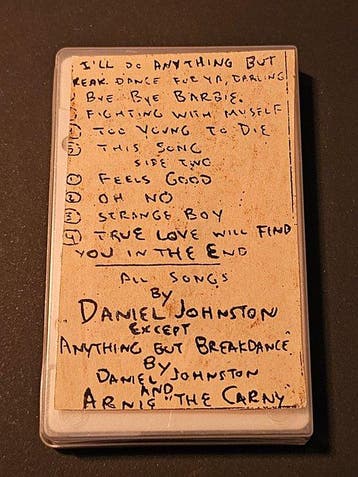 I'LL DO ANYTHING BUT
REAK DANCE FUR YA, DARLING
BYE BYE BARBIE.
FIGHTING WITH MYSELF
TOO YOUNG TO DIE
THIS SONG
SIDE TWO
FEELS GOOD
OH NO
STRANGE BOY
TRUE LOVE WILL FIND
YOU IN THE END
ALL SONGS
BY
DANIEL JOHNSTON
EXCEPT
ANYTHING BUT BREAKDANCE"
BY
DANIEL JOHNSTON
AND
ARNIE "THE CARNY